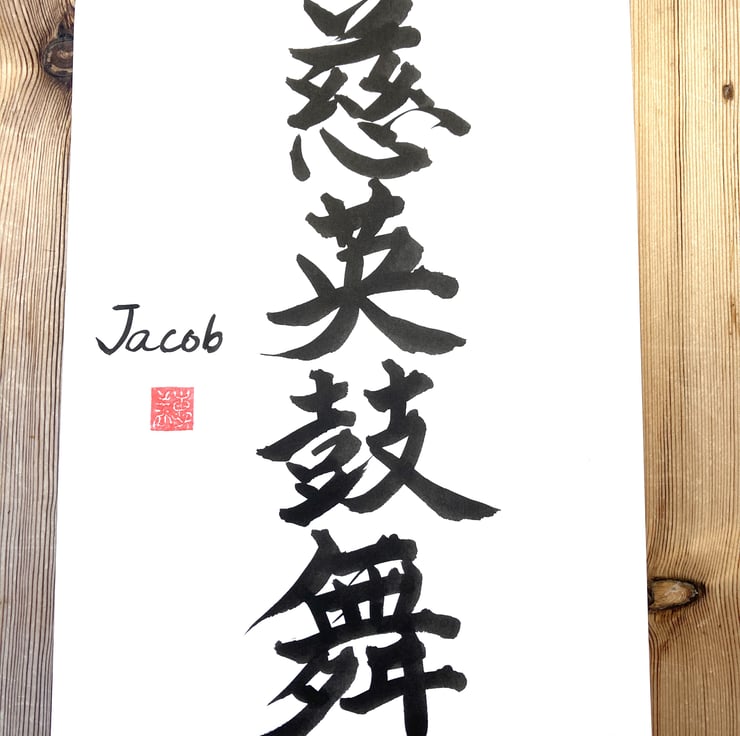 慈英鼓舞
Jacob